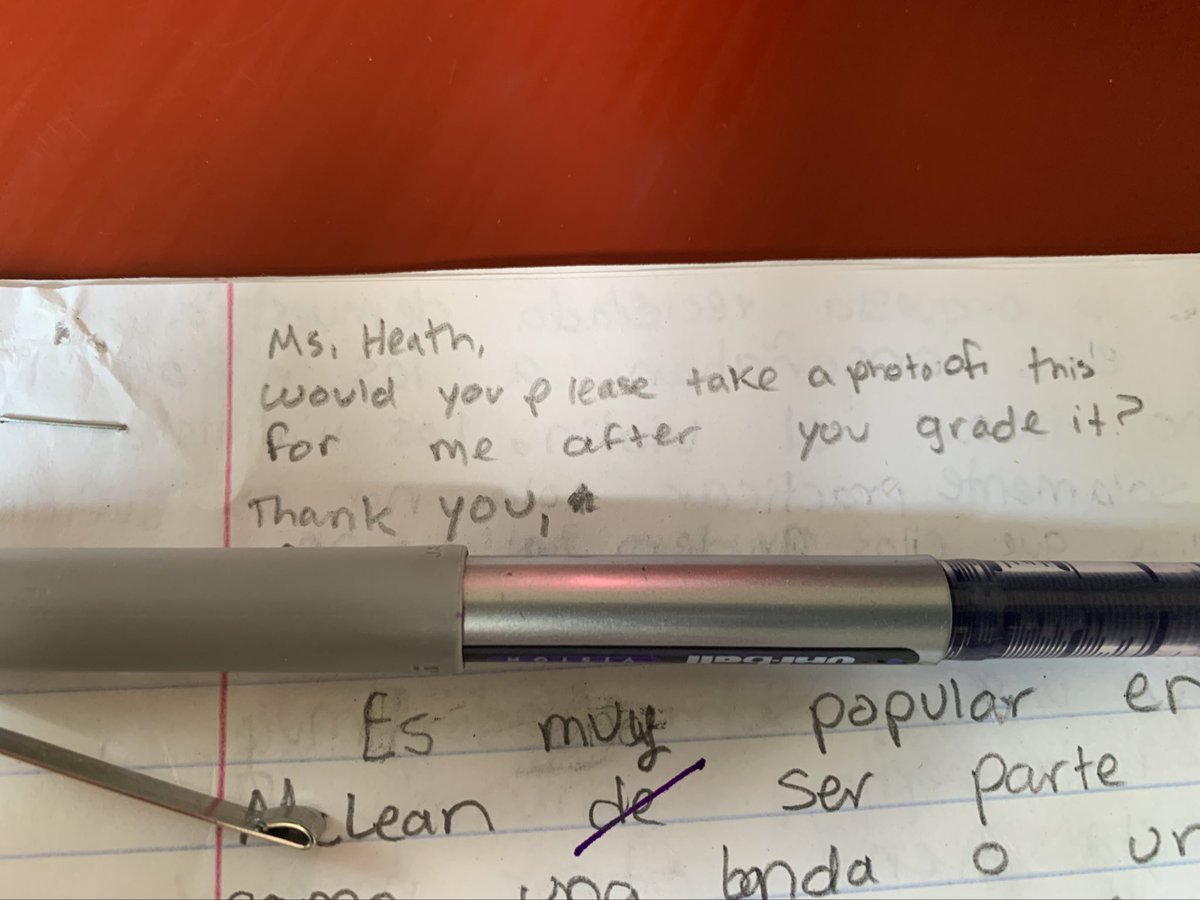 Ms. Heath,
would you please take a photo of this
for me after you grade it?
Thank you,
uni-ball
VISION
Es muy popular en
McLean de ser parte
una banda o un